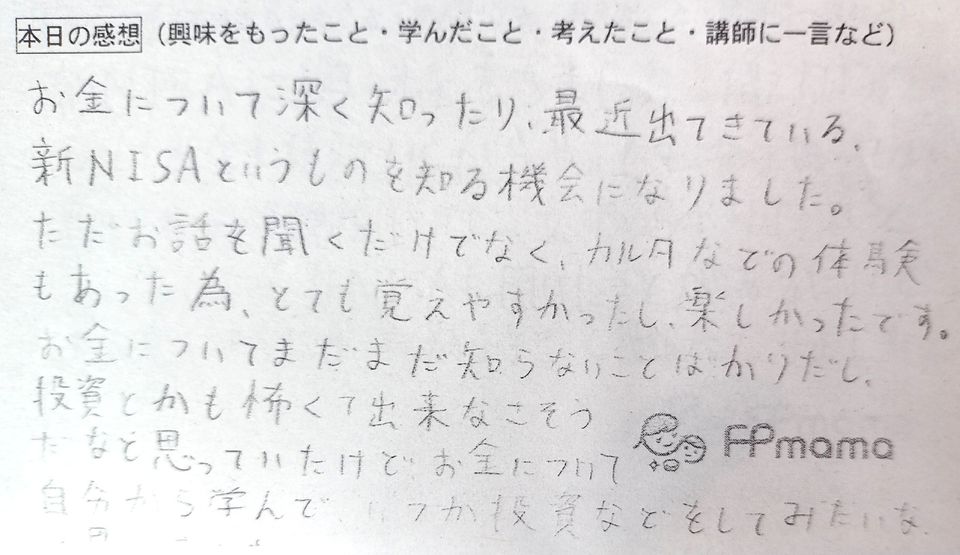 本日の感想（興味をもったこと・学んだこと・考えたこと・講師に一言など）
お金について深く知ったり、最近出てきている、
新NISAというものを知る機会になりました。
ただお話を聞くだけでなく、カルタなどの体験
もあった為、とても覚えやすかったし、楽しかったです。
お金についてまだまだ知らないことばかりだし、
投資とかも怖くて出来なさそう
だなと思っていたけど、お金について
FPmama
自分から学んで、いつか投資などをしてみたいな